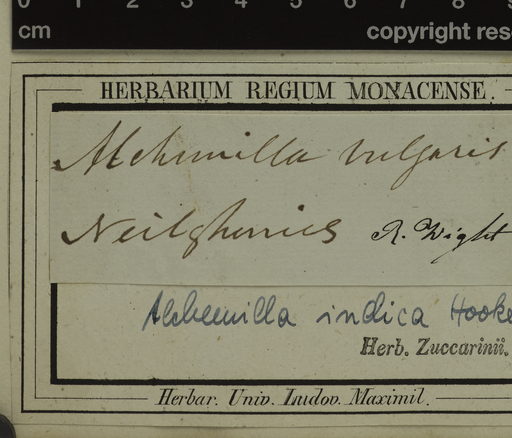 0 1 2 3 4 5 6 7 8 9
cm copyright res
HERBARIUM REGIUM MONACENSE.
Alchemilla vulgaris
Neilgherries R. Wight
Alchemilla indica Hooke
Herb. Zuccarinii.
Herbar. Univ. Ludov. Maximil.